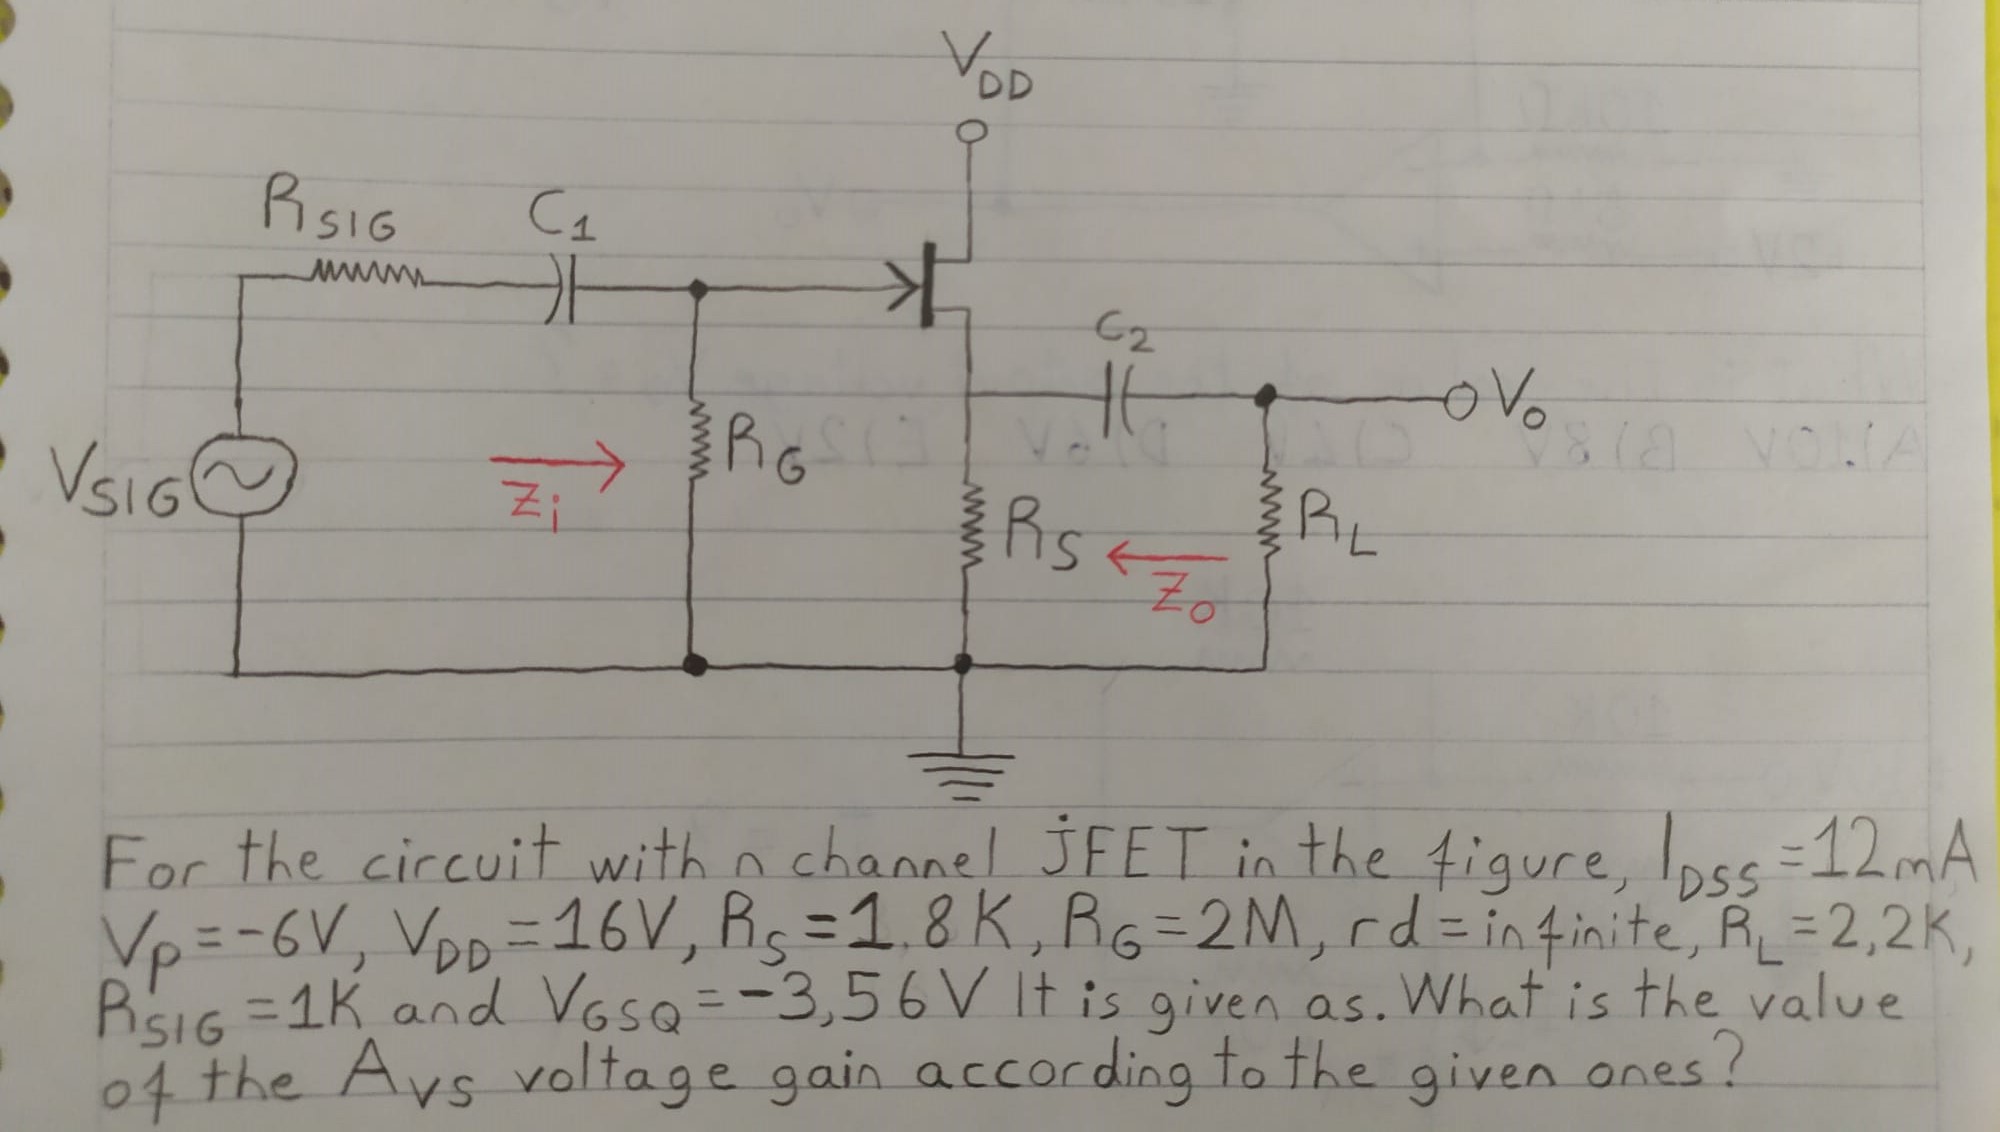 VDD
RSIG
C1
C2
Vo
VSIG
Zi
RG
RS
Zo
RL
For the circuit with n channel JFET in the figure, IDSS=12mA
Vp=-6V, VDD=16V, RS=1.8K, RG=2M, rd=infinite, RL=2,2K,
RSIG=1K and VGSQ=-3,56V It is given as. What is the value
of the Avs voltage gain according to the given ones?